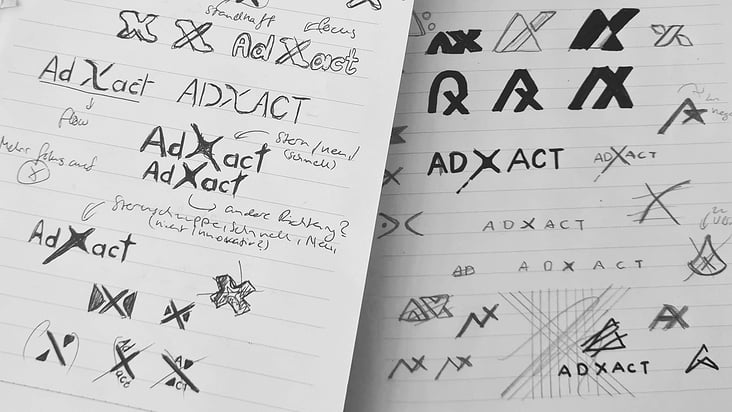 standhaft
focus
Ad Xact
Ad Xact
ADXACT
flow
AdXact
Stern/neu/
(schnell)
Mehr fokus auf
X
AdXact
andere Richtung?
Sternschnuppe, Schnell, Neu,
(nicht innovativ?)
AdXact
Ad
act
AD
ACT
AX
AD X ACT
ADXACT
ADXACT
AD
ADXACT
AX
ADXACT